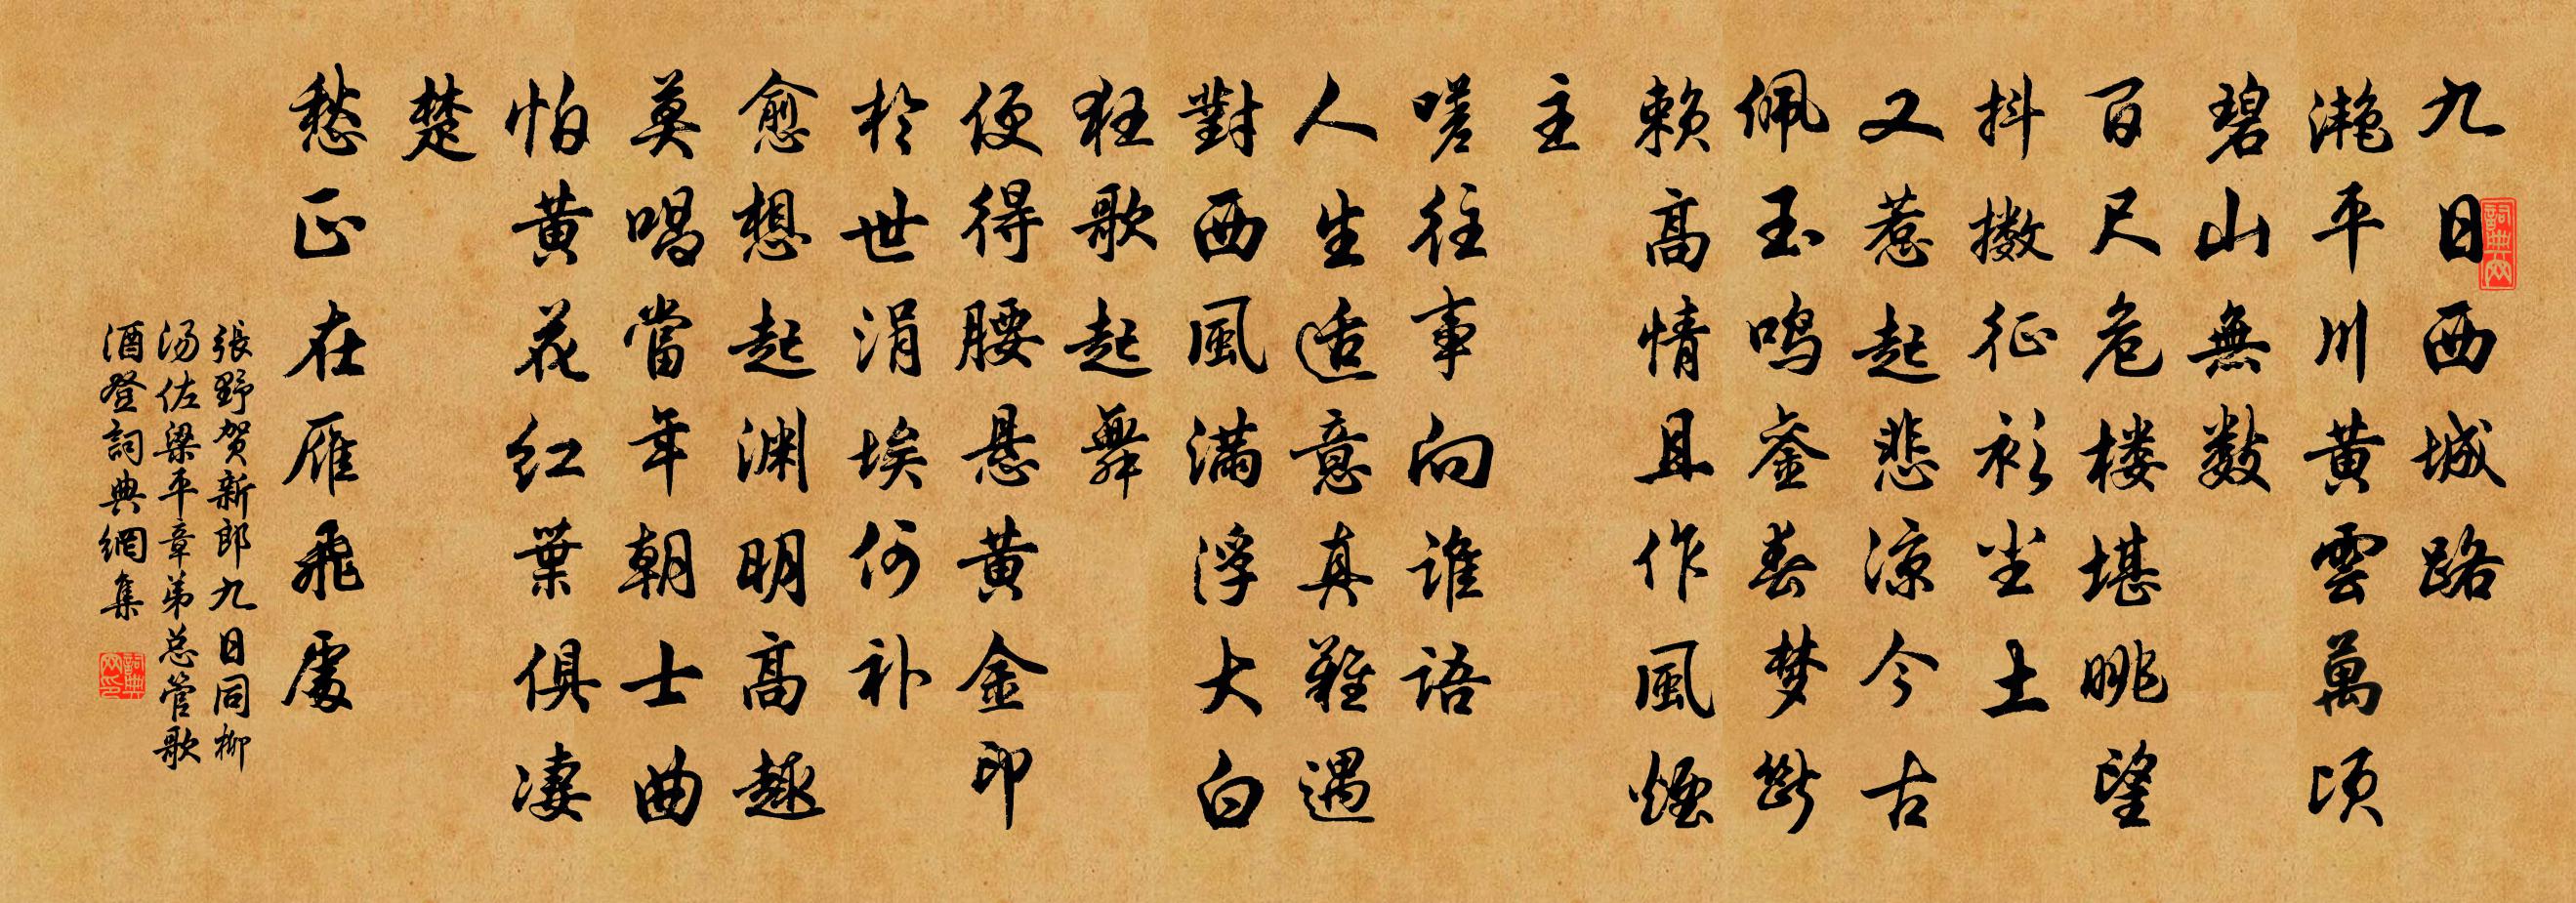 九日西城路
滟平川黄雲萬頃
碧山無数
百尺危楼堪眺望
抖擞征衫尘土
又惹起悲凉今古
佩玉鸣銮春梦断
赖高情且作風煙
主
嗟往事向谁語
人生适意真难遇
對西風满浮大白
狂歌起舞
便得腰悬黄金印
於世涓埃何补
愈想起渊明高趣
莫唱當年朝士曲
怕黄花红葉俱凄
楚
愁正在雁飛處
張野贺新郎九日同柳
汤佐梁平章弟总管歌
酒登詞典網集
詞典网
詞典网印